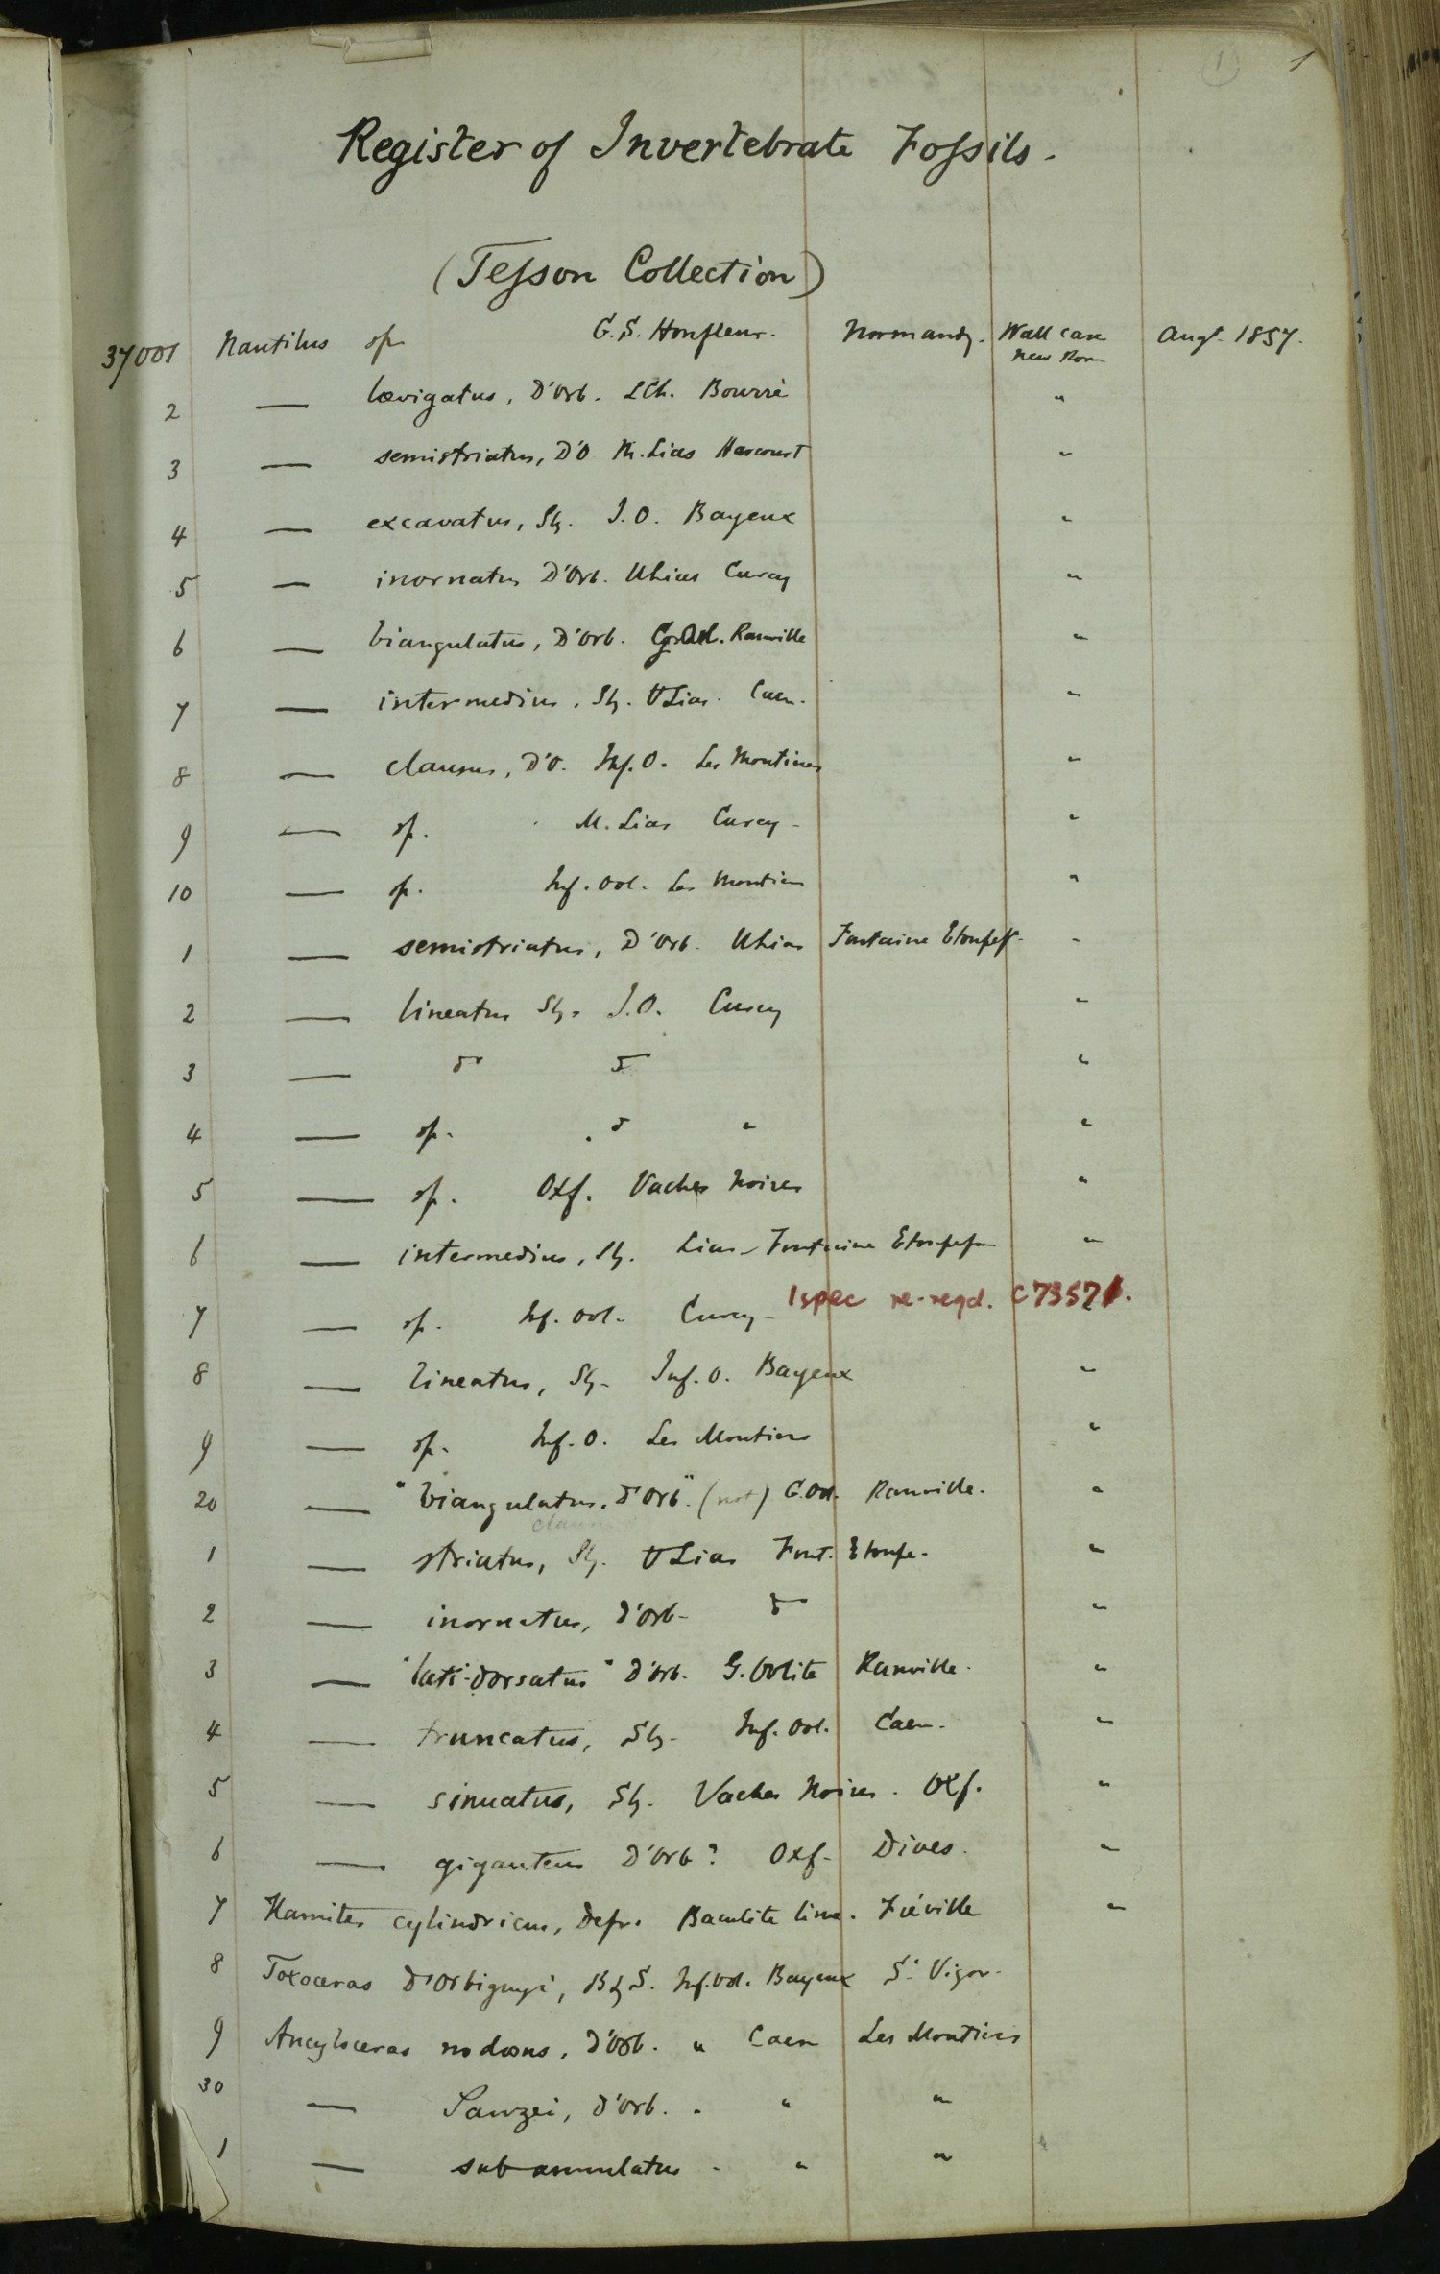 1 1
Register of Invertebrate Fossils.
(Tesson Collection)
37001 Nautilus sp. G.S. Honfleur. Normandy. Wall case Augt. 1857.
New Rom
2 — lævigatus, D'Orb. Bourré "
3 — semistriatus, D'O M. Lias Harcourt "
4 — excavatus, Sy. I.O. Bayeux "
5 — inornatus D'Orb. ULias Curcy "
6 — biangulatus, D'Orb. Ranville "
7 — intermedius, Sy. ULias. Caen. "
8 — clausus, D'O. Inf. O. Les Moutiers "
9 — sp. M. Lias Curcy - "
10 — sp. Inf. Ool. Les Moutiers "
1 — semistriatus, D'Orb. ULias Fontaine Etoupef. "
2 — lineatus Sy. I.O. Curcy "
3 — do do "
4 — sp. do " "
5 — sp. Oxf. Vaches Noires "
6 — intermedius, Sy. Lias - Fontaine Etoupef "
7 — sp. Inf. Ool. Curcy - 1 spec re-regd. C73571.
8 — lineatus, Sy. Inf. O. Bayeux "
9 — sp. Inf. O. Les Moutiers "
20 — "biangulatus. d'Orb". (not) G. Ool. Ranville. "
1 — striatus, Sy. ULias Font. Etoupe. "
2 — inornatus, d'Orb - do "
3 — "lati-dorsatus" d'Orb. G. Oolite Ranville. "
4 — truncatus, Sy. Inf. Ool. Caen. "
5 — sinuatus, Sy. Vaches Noires. Oxf. "
6 — giganteus D'Orb? Oxf. Dives. "
7 Hamites cylindricus, Defr. Baculite lime. Fréville "
8 Toxoceras D'Orbignyi, B&S. Inf. Ool. Bayeux St Vigor.
9 Ancyloceras nodosus, d'Orb. " Caen Les Moutiers
30 — Sauzei, d'Orb. . " "
1 — sub-annulatus . " "